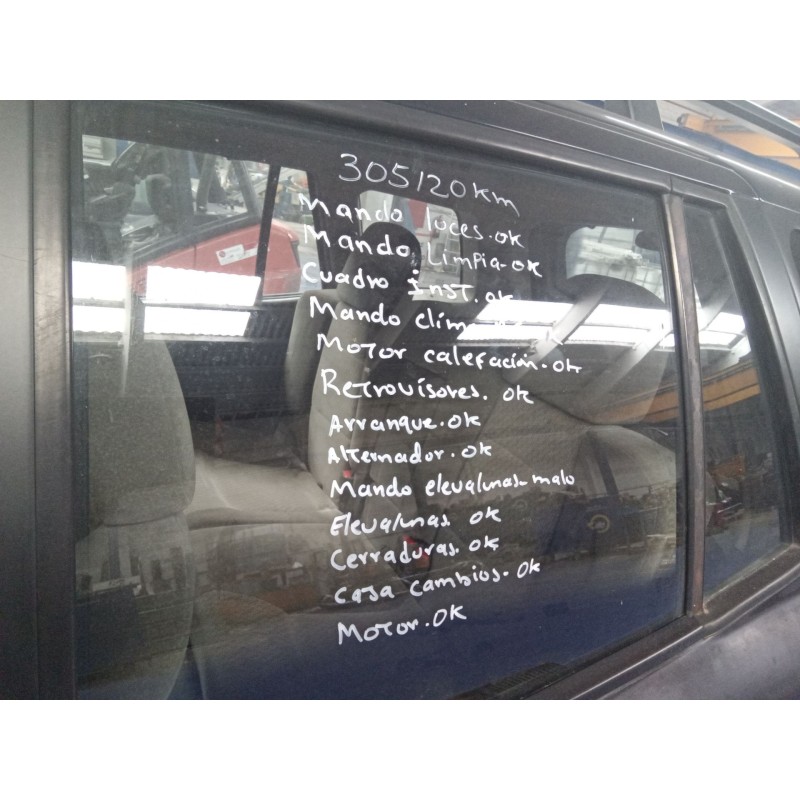 305120km
Mando luces.ok
Mando Limpia-ok
Cuadro inst.ok
Mando clim
Motor calefación.ok
Retrovisores. ok
Arranque.ok
Alternador.ok
Mando elevalunas-malo
Elevalunas ok
Cerraduras.ok
Caja cambios-ok
Motor.ok